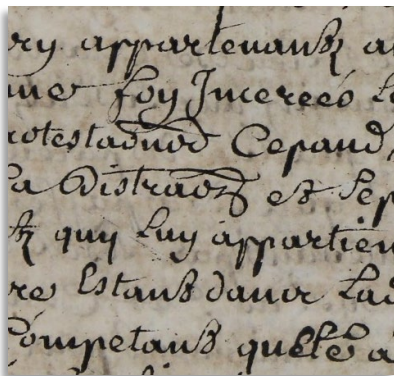 ry appartenantz a
foy Jncereeé
protestaõns Cepand
La distraõn et sep
tz quy luy appartien
re Estant dans Lad
Competant quelté a